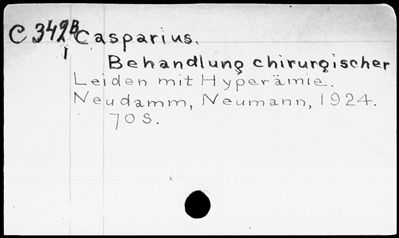 C 342B Casparius.
1
Behandlung chirurgischer
Leiden mit Hyperämie.
Neudamm, Neumann, 1924.
70 S.